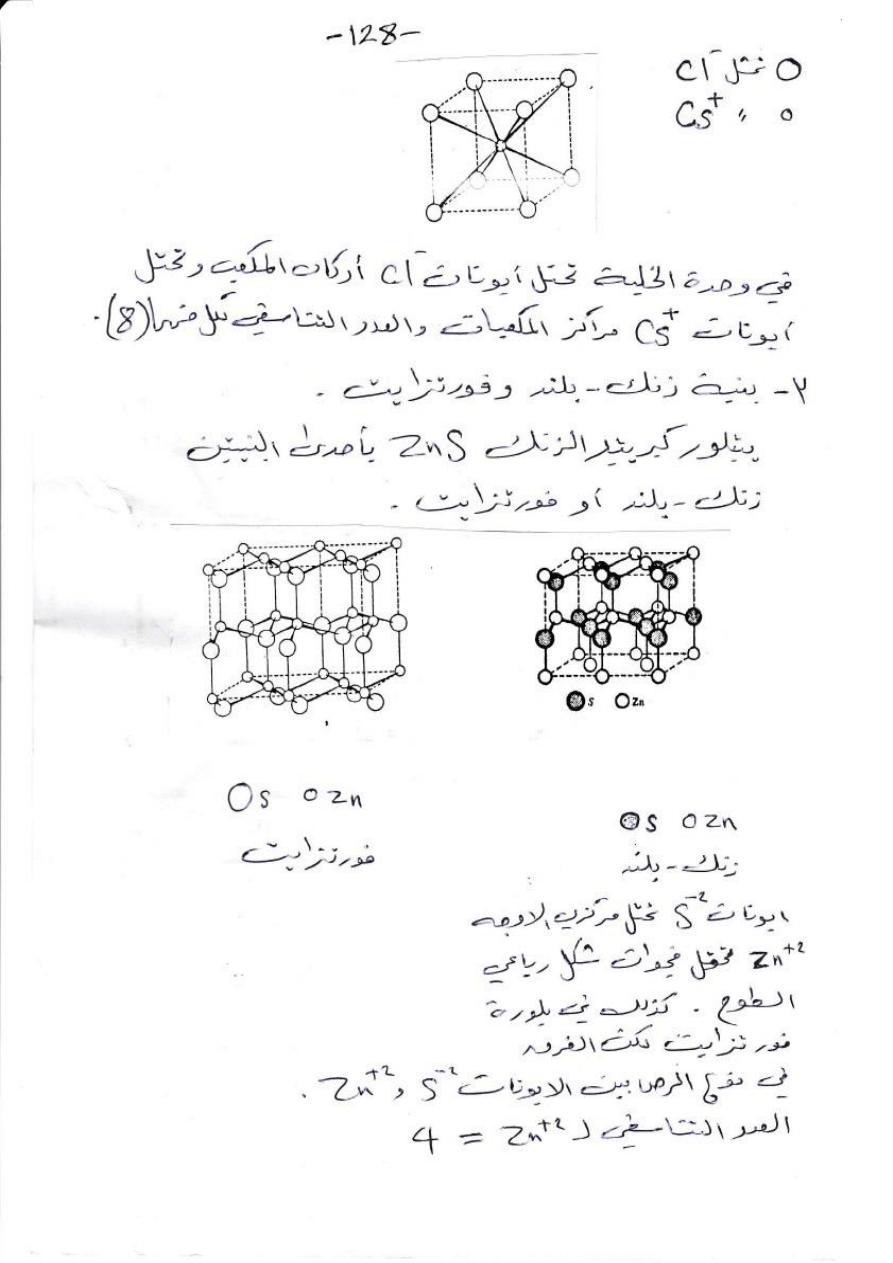 -128-
O تمثل Cl⁻
o " Cs⁺
في وحدة الخلية تحتل أيونات Cl⁻ أركان المكعب وتحتل
أيونات Cs⁺ مراكز المكعبات والعدد التناسقي لكل منهما (8).
٢- بنية زنك - بلند وفورتزايت .
يتبلور كبريتيد الزنك ZnS بأحدى البنيتين
زنك - بلند أو فورتزايت .
S Zn
S Zn
زنك - بلند
S Zn
فورتزايت
ايونات S⁻² تحتل مركزي الاوجه
Zn⁺² تحتل فجوات شكل رباعي
السطوح . كذلك في بلورة
فورتزايت لكن الفرق
في نوع الرص بين الايونات S⁻² و Zn⁺² .
العدد التناسقي لـ Zn⁺² = 4